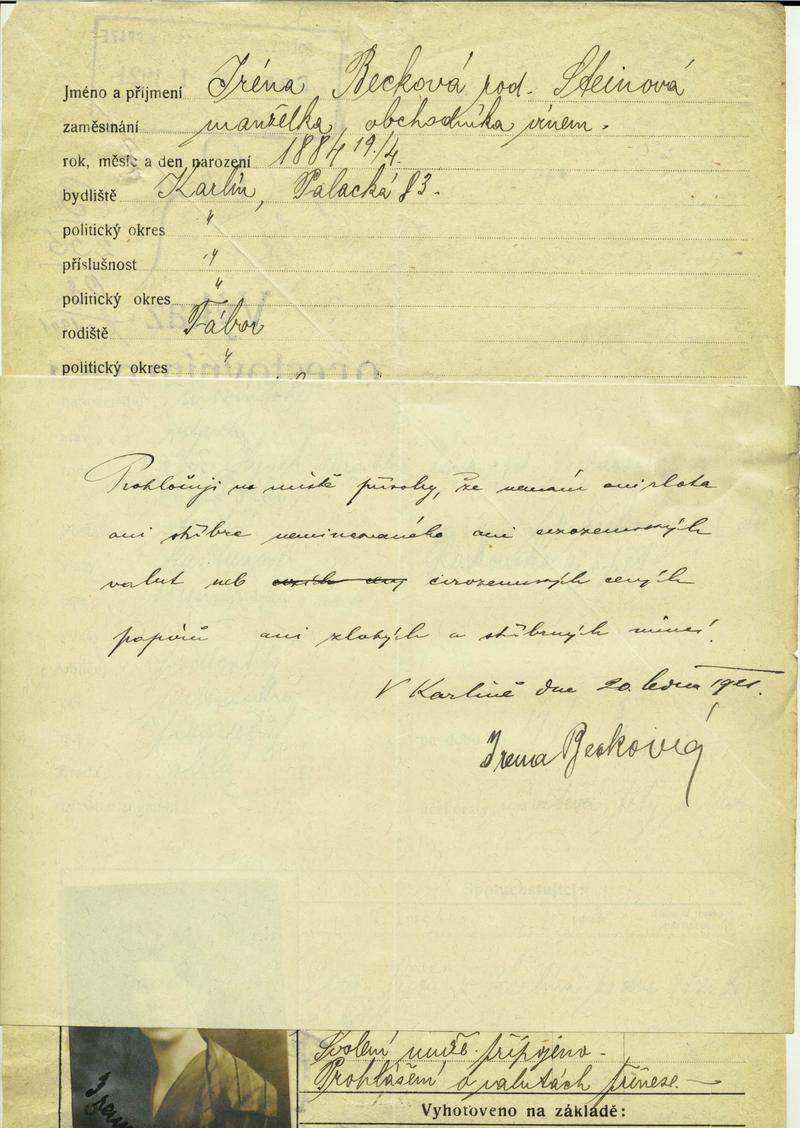 Jméno a příjmení Iréna Becková rod. Steinová
zaměstnání manželka obchodníka vínem.
rok, měsíc a den narození 1884 19./4.
bydliště Karlín, Palacká 83.
politický okres "
příslušnost "
politický okres "
rodiště Tábor
politický okres "
Prohlašuji na místě přísahy, že nemám ani zlata
ani stříbra nemincovaného ani cizozemských
valut neb cizozemských cenných
papírů ani zlatých a stříbrných mincí.
V Karlíně dne 20. ledna 1921.
Irena Becková
Spoluchestující:
Svolení muže připojeno.
Prohlášení o valutách přinese.
Vyhotoveno na základě:
Irena